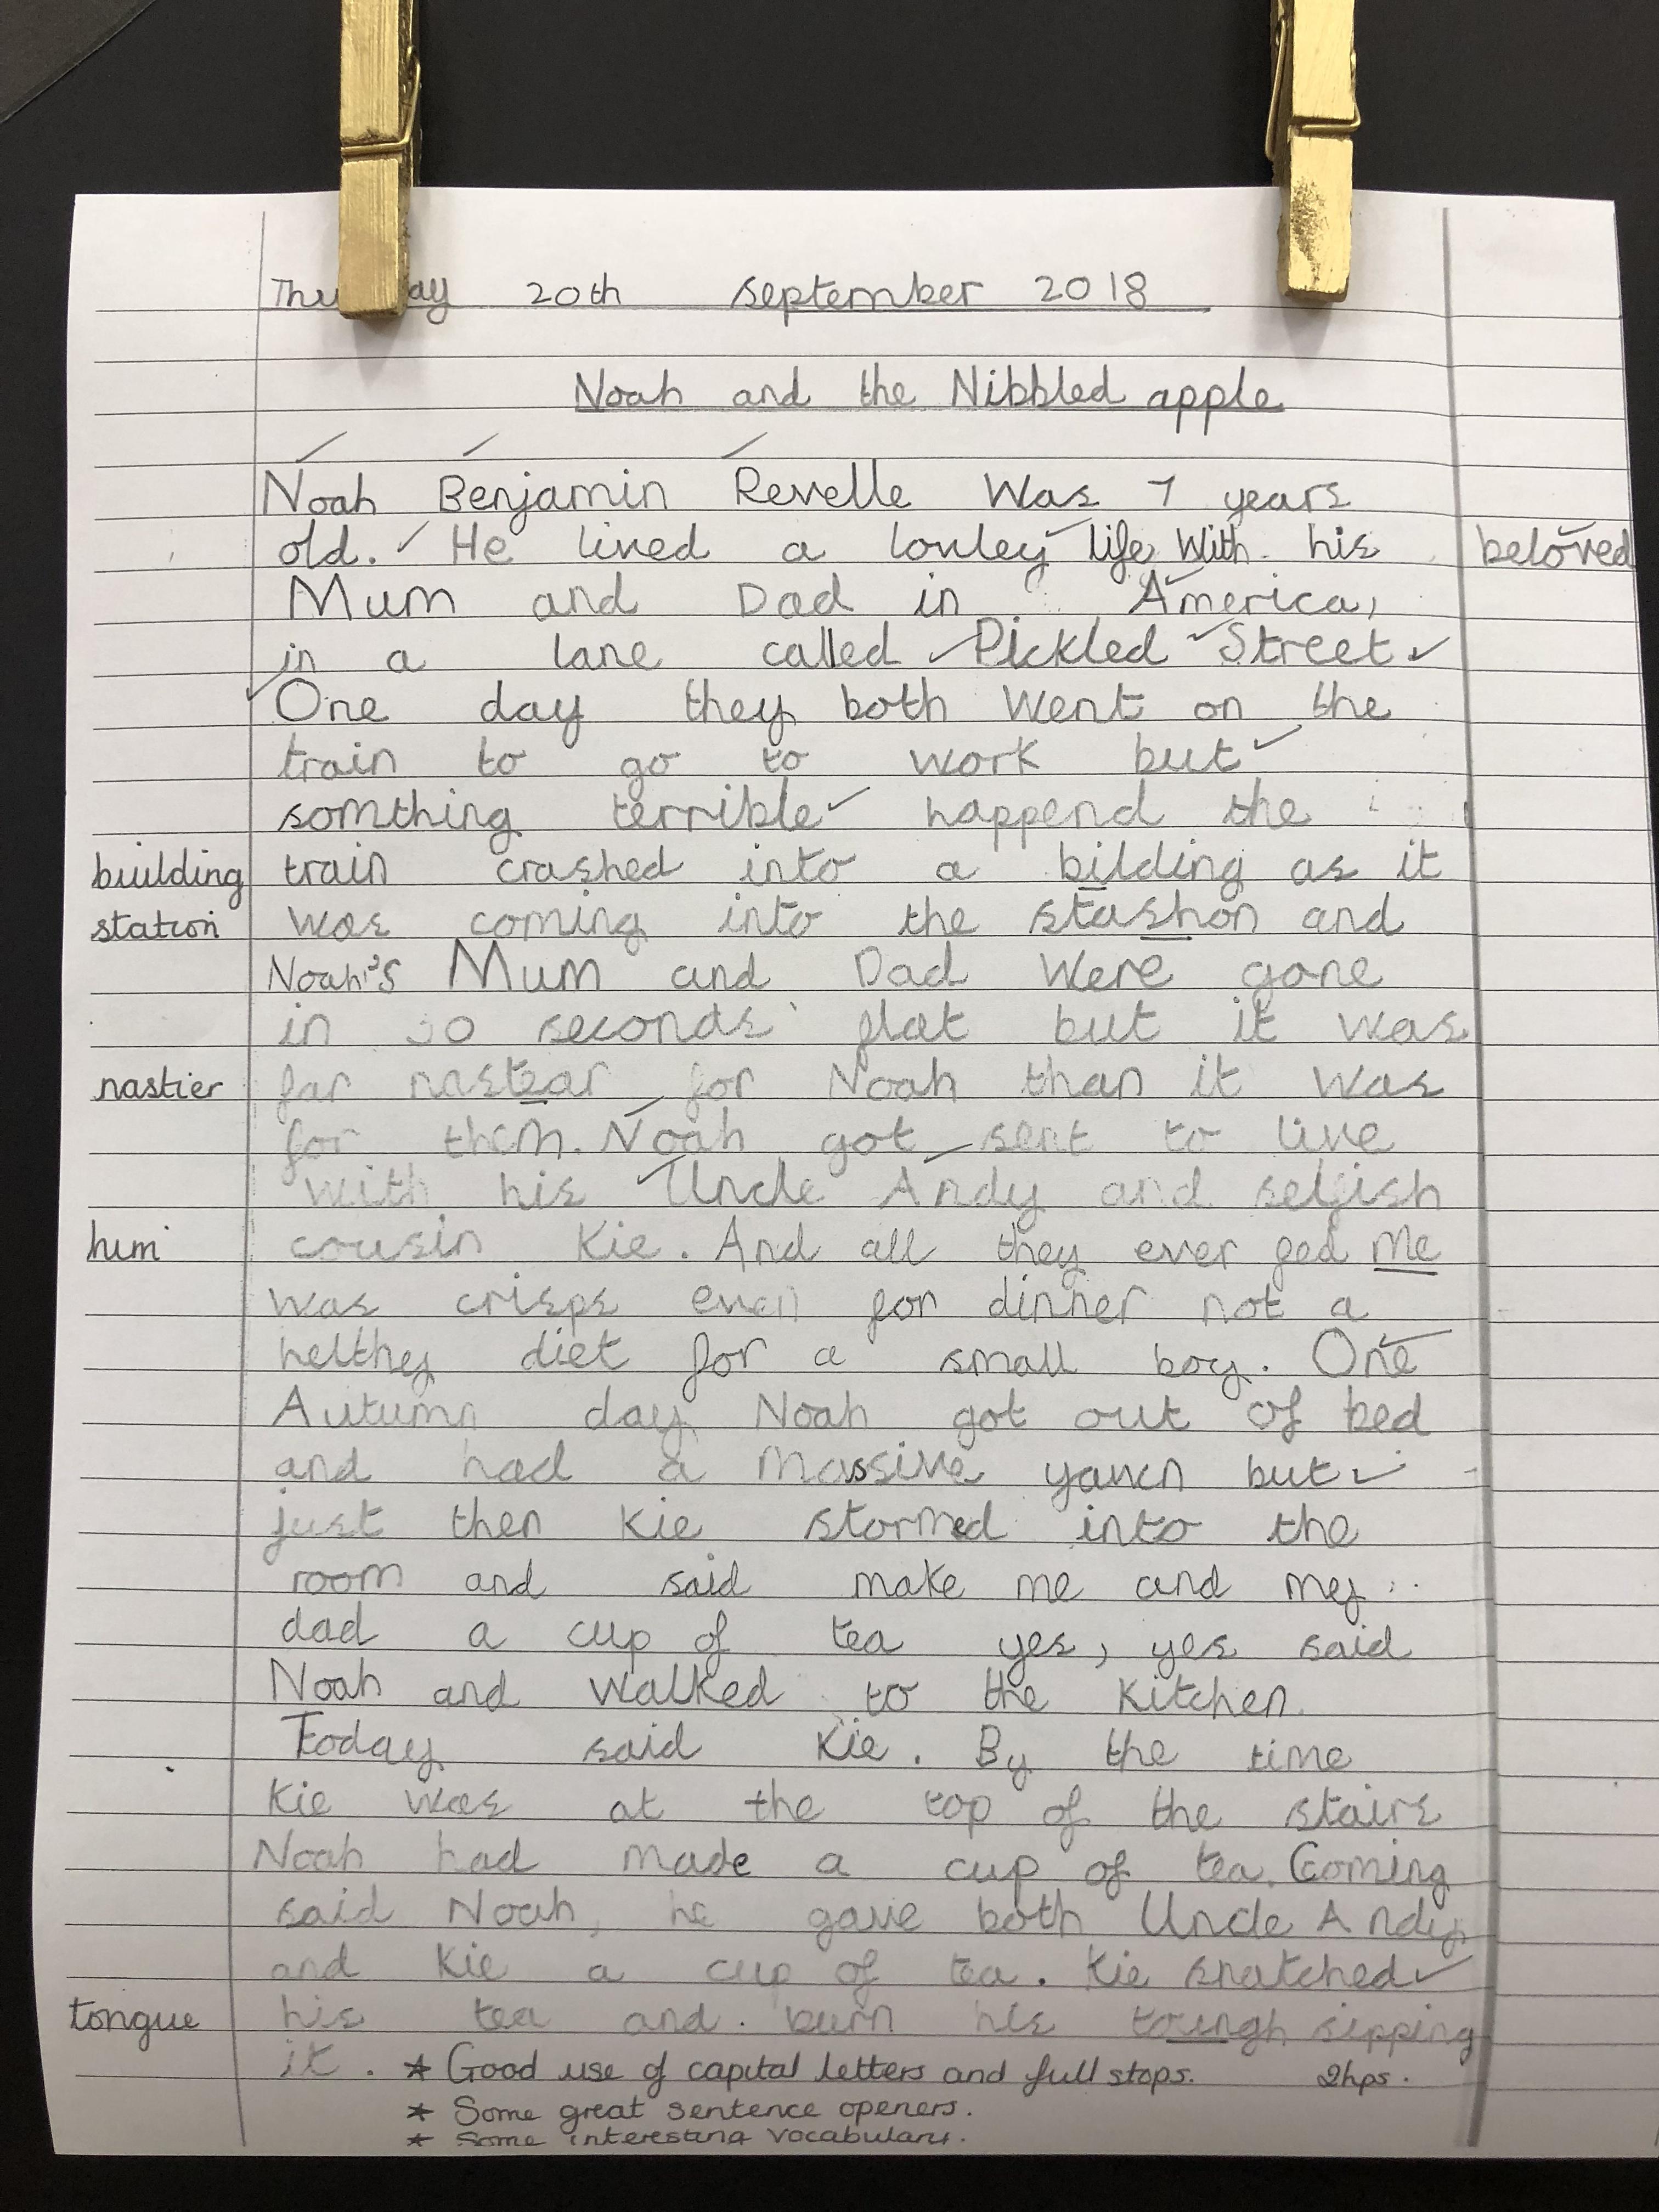 Thu ay 20th september 2018
Noah and the Nibbled apple
Noah Benjamin Revelle Was 7 years
old. He lived a lonley life With his beloved
Mum and Dad in America,
in a lane called Pickled Street
One day they both Went on the
train to go to work but
somthing terrible happend the
building train crashed into a bilding as it
station was coming into the stashon and
Noah's Mum and Dad Were gone
in 30 seconds flat but it was
nastier far nastear for Noah than it was
for them. Noah got sent to live
with his Uncle Andy and selfish
him cousin Kie. And all they ever fed me
was crisps even for dinner not a
helthey diet for a small boy. One
Autumn day Noah got out of bed
and had a massive yawn but
just then Kie stormed into the
room and said make me and my
dad a cup of tea yes, yes said
Noah and walked to the kitchen.
Today said Kie. By the time
Kie was at the top of the stairs
Noah had made a cup of tea. Coming
said Noah, he gave both Uncle Andy
and Kie a cup of tea. Kie snatched
tongue his tea and burn his toungh sipping
it. * Good use of capital letters and full stops. 2hps.
* Some great sentence openers.
* Some interesting vocabulary.